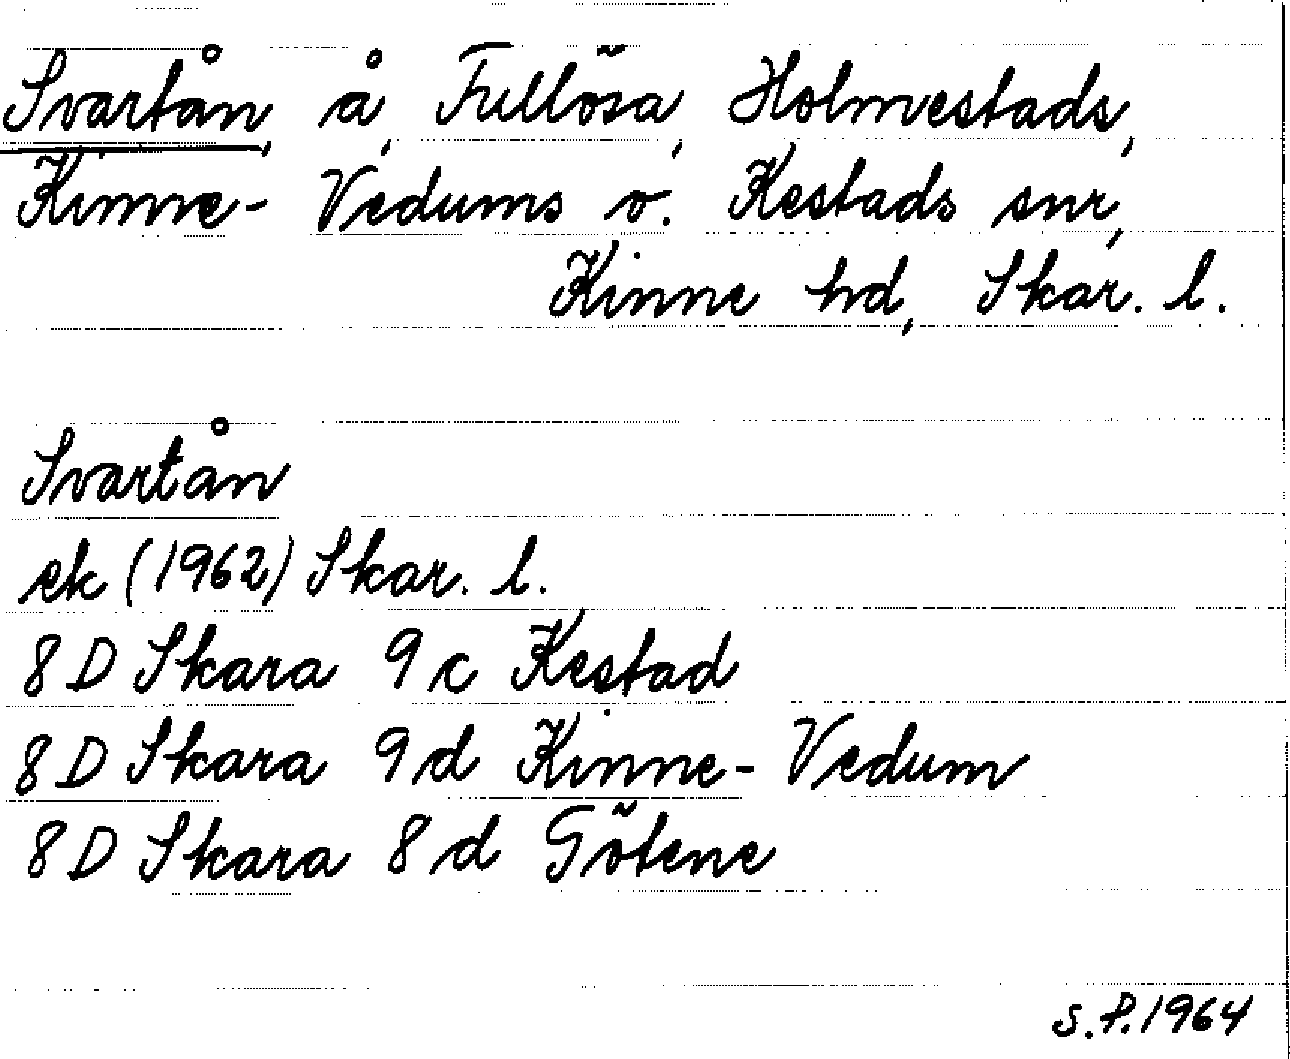 Svartån, å, Fullösa, Holmestads,
Kinne- Vedums o. Kestads snr,
Kinne hd, Skar. l.
Svartån
ek (1962) Skar. l.
8 D Skara 9 c Kestad
8 D Skara 9 d Kinne- Vedum
8 D Skara 8 d Götene
S.P. 1964